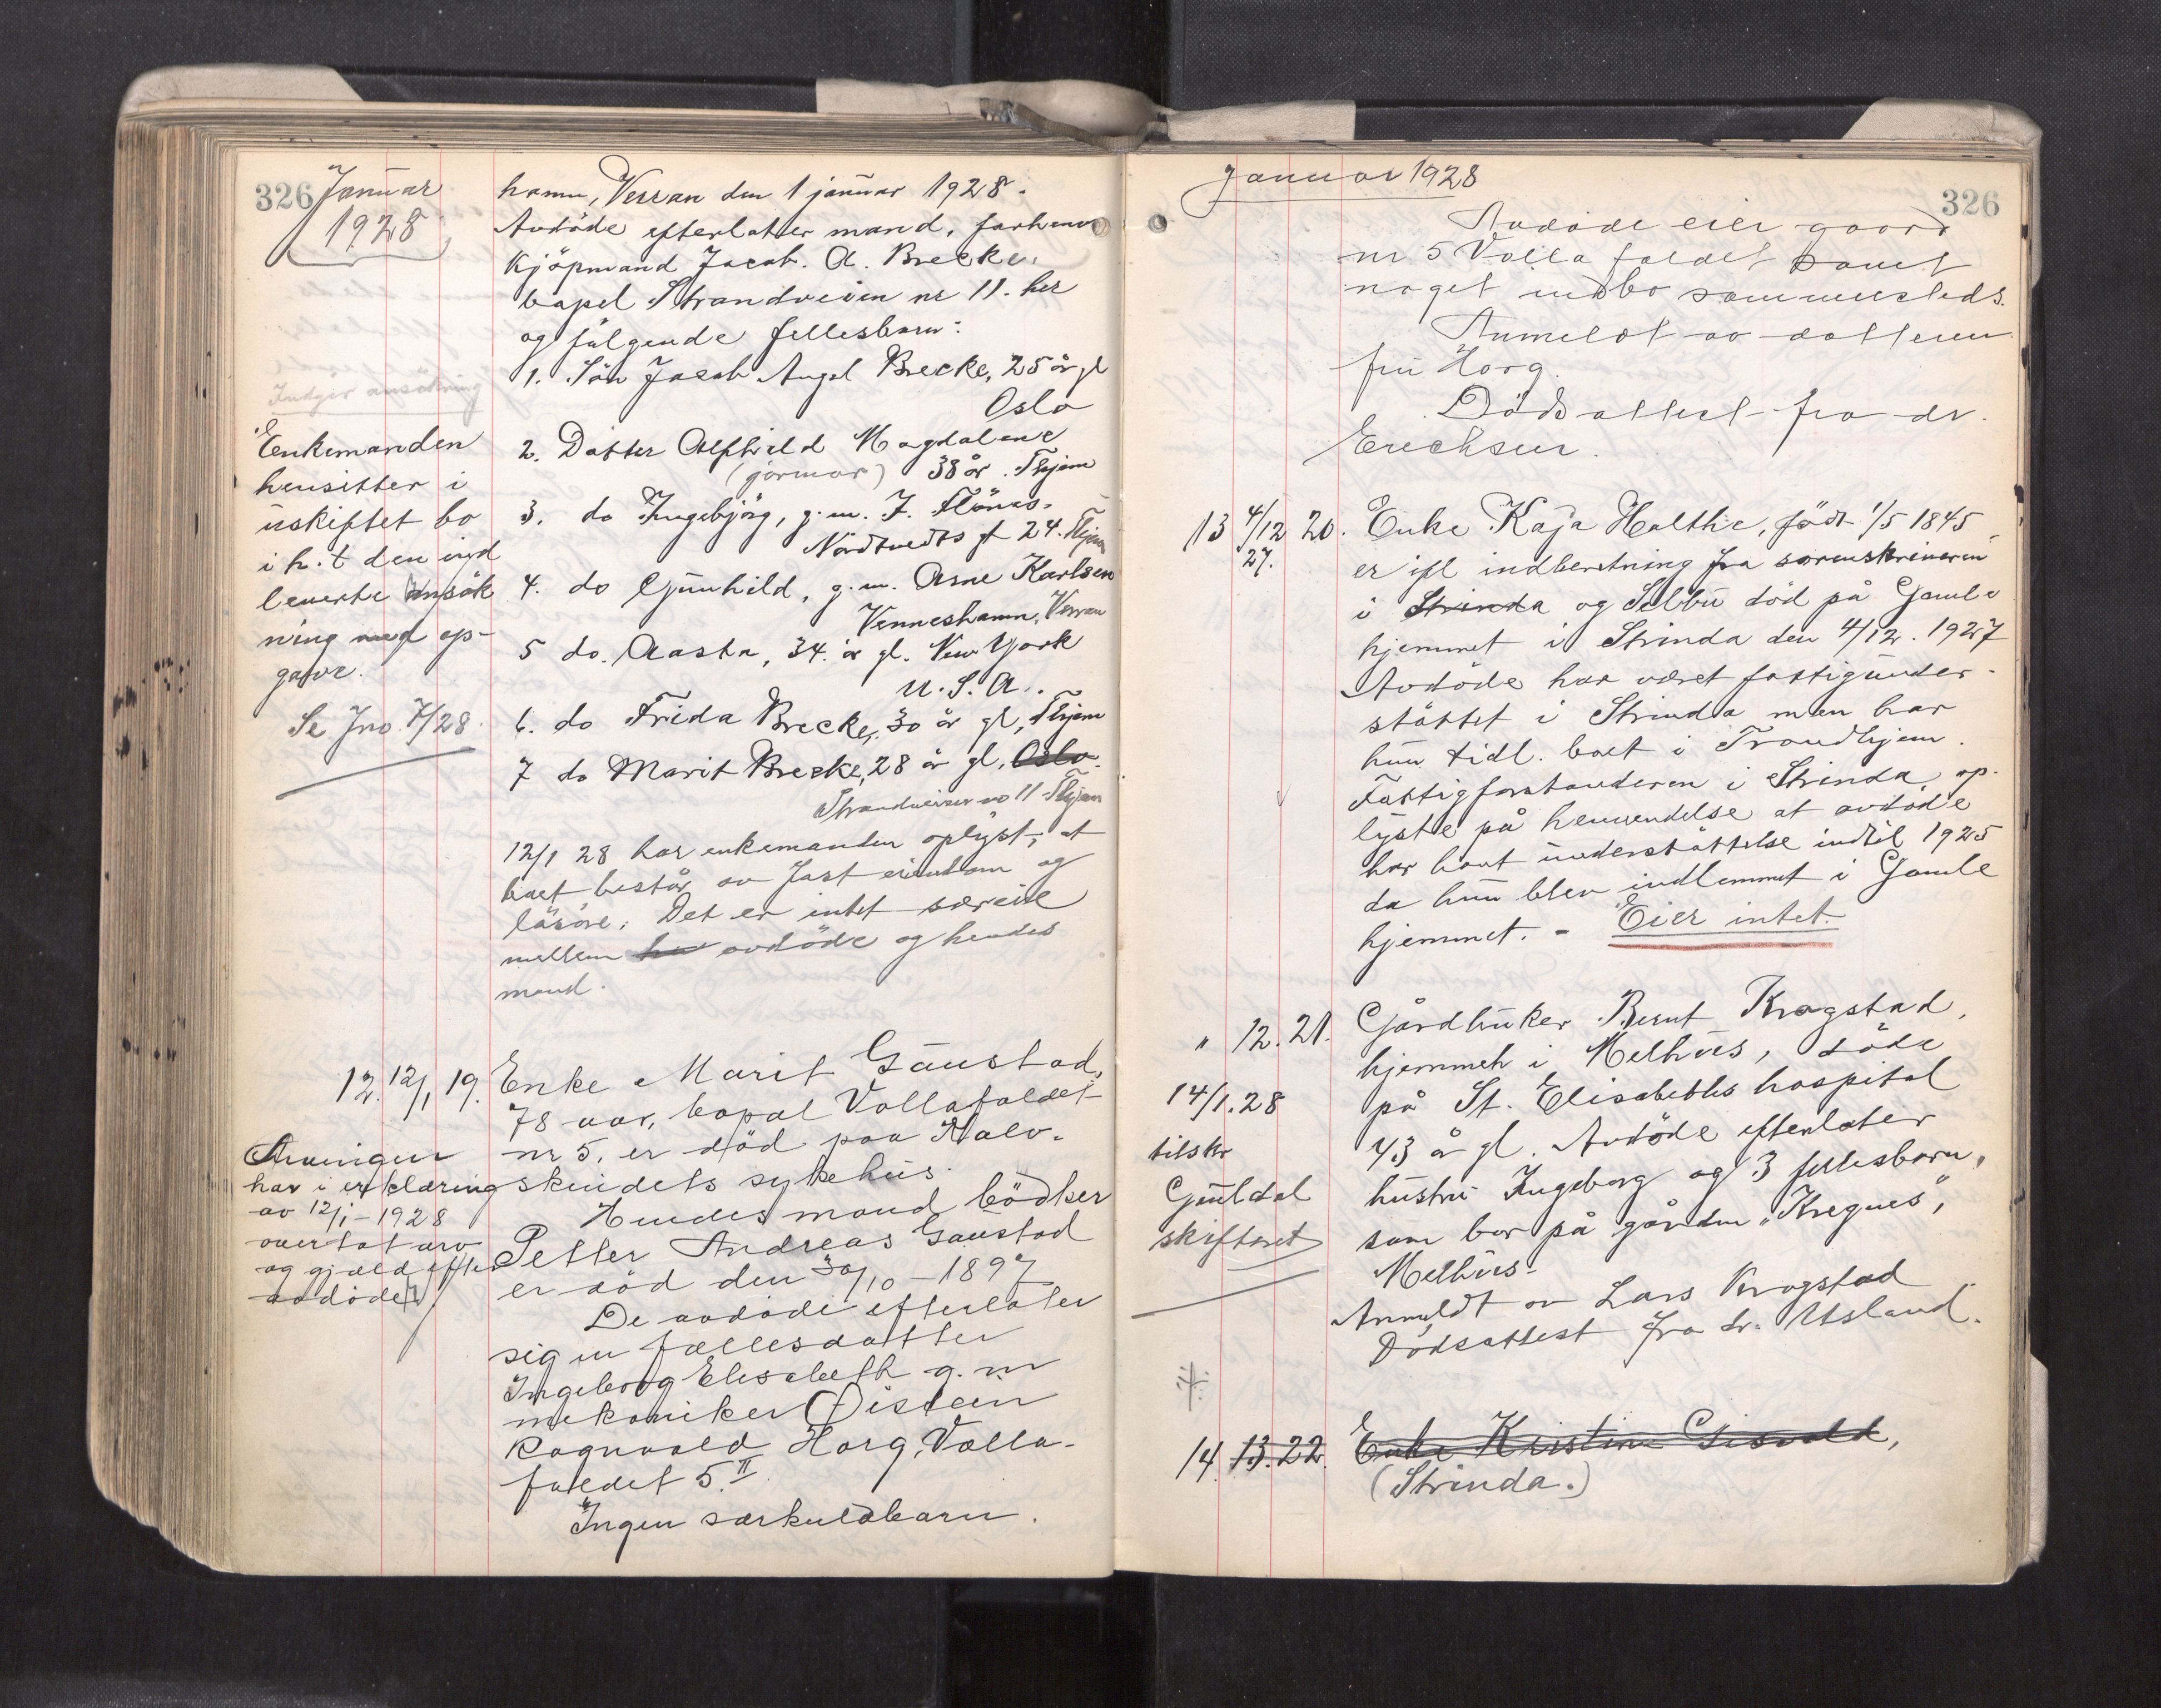 326 Januar
1928
hamn, Verran den 1 januar 1928.
Avdöde efterlater mand, forhenv
Kjöpmand Jacob. A. Brecke,
bopel Strandveien nr 11. her
og fölgende fellesbarn:
1. Sön Jacob Angel Brecke, 25 år gl
Oslo
2. Datter Alfhild Magdalene
(jormor) 38 år. Thjem
3. do Ingebjörg, g.m. J. Flönes-
Nordtvedts gt 24. Thjem
4. do Gunhild, g.m. Arne Karlsen
Venneshamn, Verran
5 do. Aasta, 34 år gl. New York
U.S.A.
6. do Frida Brecke, 30 år gl, Thjem
7 do Marit Brecke, 28 år gl, Oslo.
Strandveien no 11 Thjem
12/1 28 har enkemanden oplyst, at
boet består av fast eiendom og
lösöre. Det er intet særeie
mellem avdöde og hendes
mand.
Indgir ansökning
Enkemanden
hensitter i
uskiftet bo
i h.t den ind
leverte ansök
ning med op-
gave.
Se Jno 7/28.
12. 12/1 19. Enke Marit Gaustad,
78 aar, bopal Vollafaldet
nr 5, er död paa Kalv-
skindets sykehus.
Hendes mand bödker
Petter Andreas Gaustad
er död den 30/10 - 1897
De avdöde efterlater
sig en fællesdatter
Ingeborg Elisabeth g.m
mekaniker Øistein
Ragnvald Horg, Volla-
faldet 5.II
Ingen særkuldbarn.
Arvingen
har i erklæring
av 12/1-1928
overtat arv
og gjæld efter
avdöde
Januar 1928
326
Avdöde eier gaard
nr 5 Vollafaldet samt
noget indbo sammesteds.
Anmeldt av datteren
fru Horg.
Dödsattest fra dr.
Erichsen.
13 4/12 20. Enke Kaja Holthe, födt 1/5 1845
27. er ifl indberetning fra sorenskriveren
i Strinda og Selbu död på Gamle
hjemmet i Strinda den 4/12. 1927
Avdöde har været fattigunder-
stöttet i Strinda men har
hun tidl. boet i Trondhjem.
Fattigforstanderen i Strinda op-
lyste på henvendelse at avdöde
har havt understöttelse indtil 1925
da hun blev indlemmet i Gamle
hjemmet. - Eier intet.
" 12. 21. Gårdbruker Bernt Krogstad,
hjemmeh i Melhus, döde
på St. Elisabeths hospital
43 å gl. Avdöde efterlater
hustru Ingeborg og 3 fellesbarn,
som bor på gården "Kregnes",
Melhus.
Anmeldt av Lars Krogstad
Dödsattest fra dr. Utsland.
14/1.28
tilskr
Guldal
skifteret
14. 13. 22. Enke Kristine Gisvold,
(Strinda.)